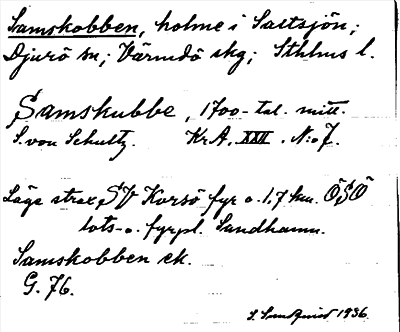 Samskobben, holme i Saltsjön;
Djurö sn; Värmdö skg; Sthlms l.
Samskubbe, 1700-tal. mitt.
S. von Schultz. Kr.A. XXII. N:o 7.
Läge strax SV Korsö fyr o. 1,7 km. ÖSÖ
lots- o. fyrpl. Sandhamn.
Samskobben ek.
G. 76.
S. Sundquist 1936.